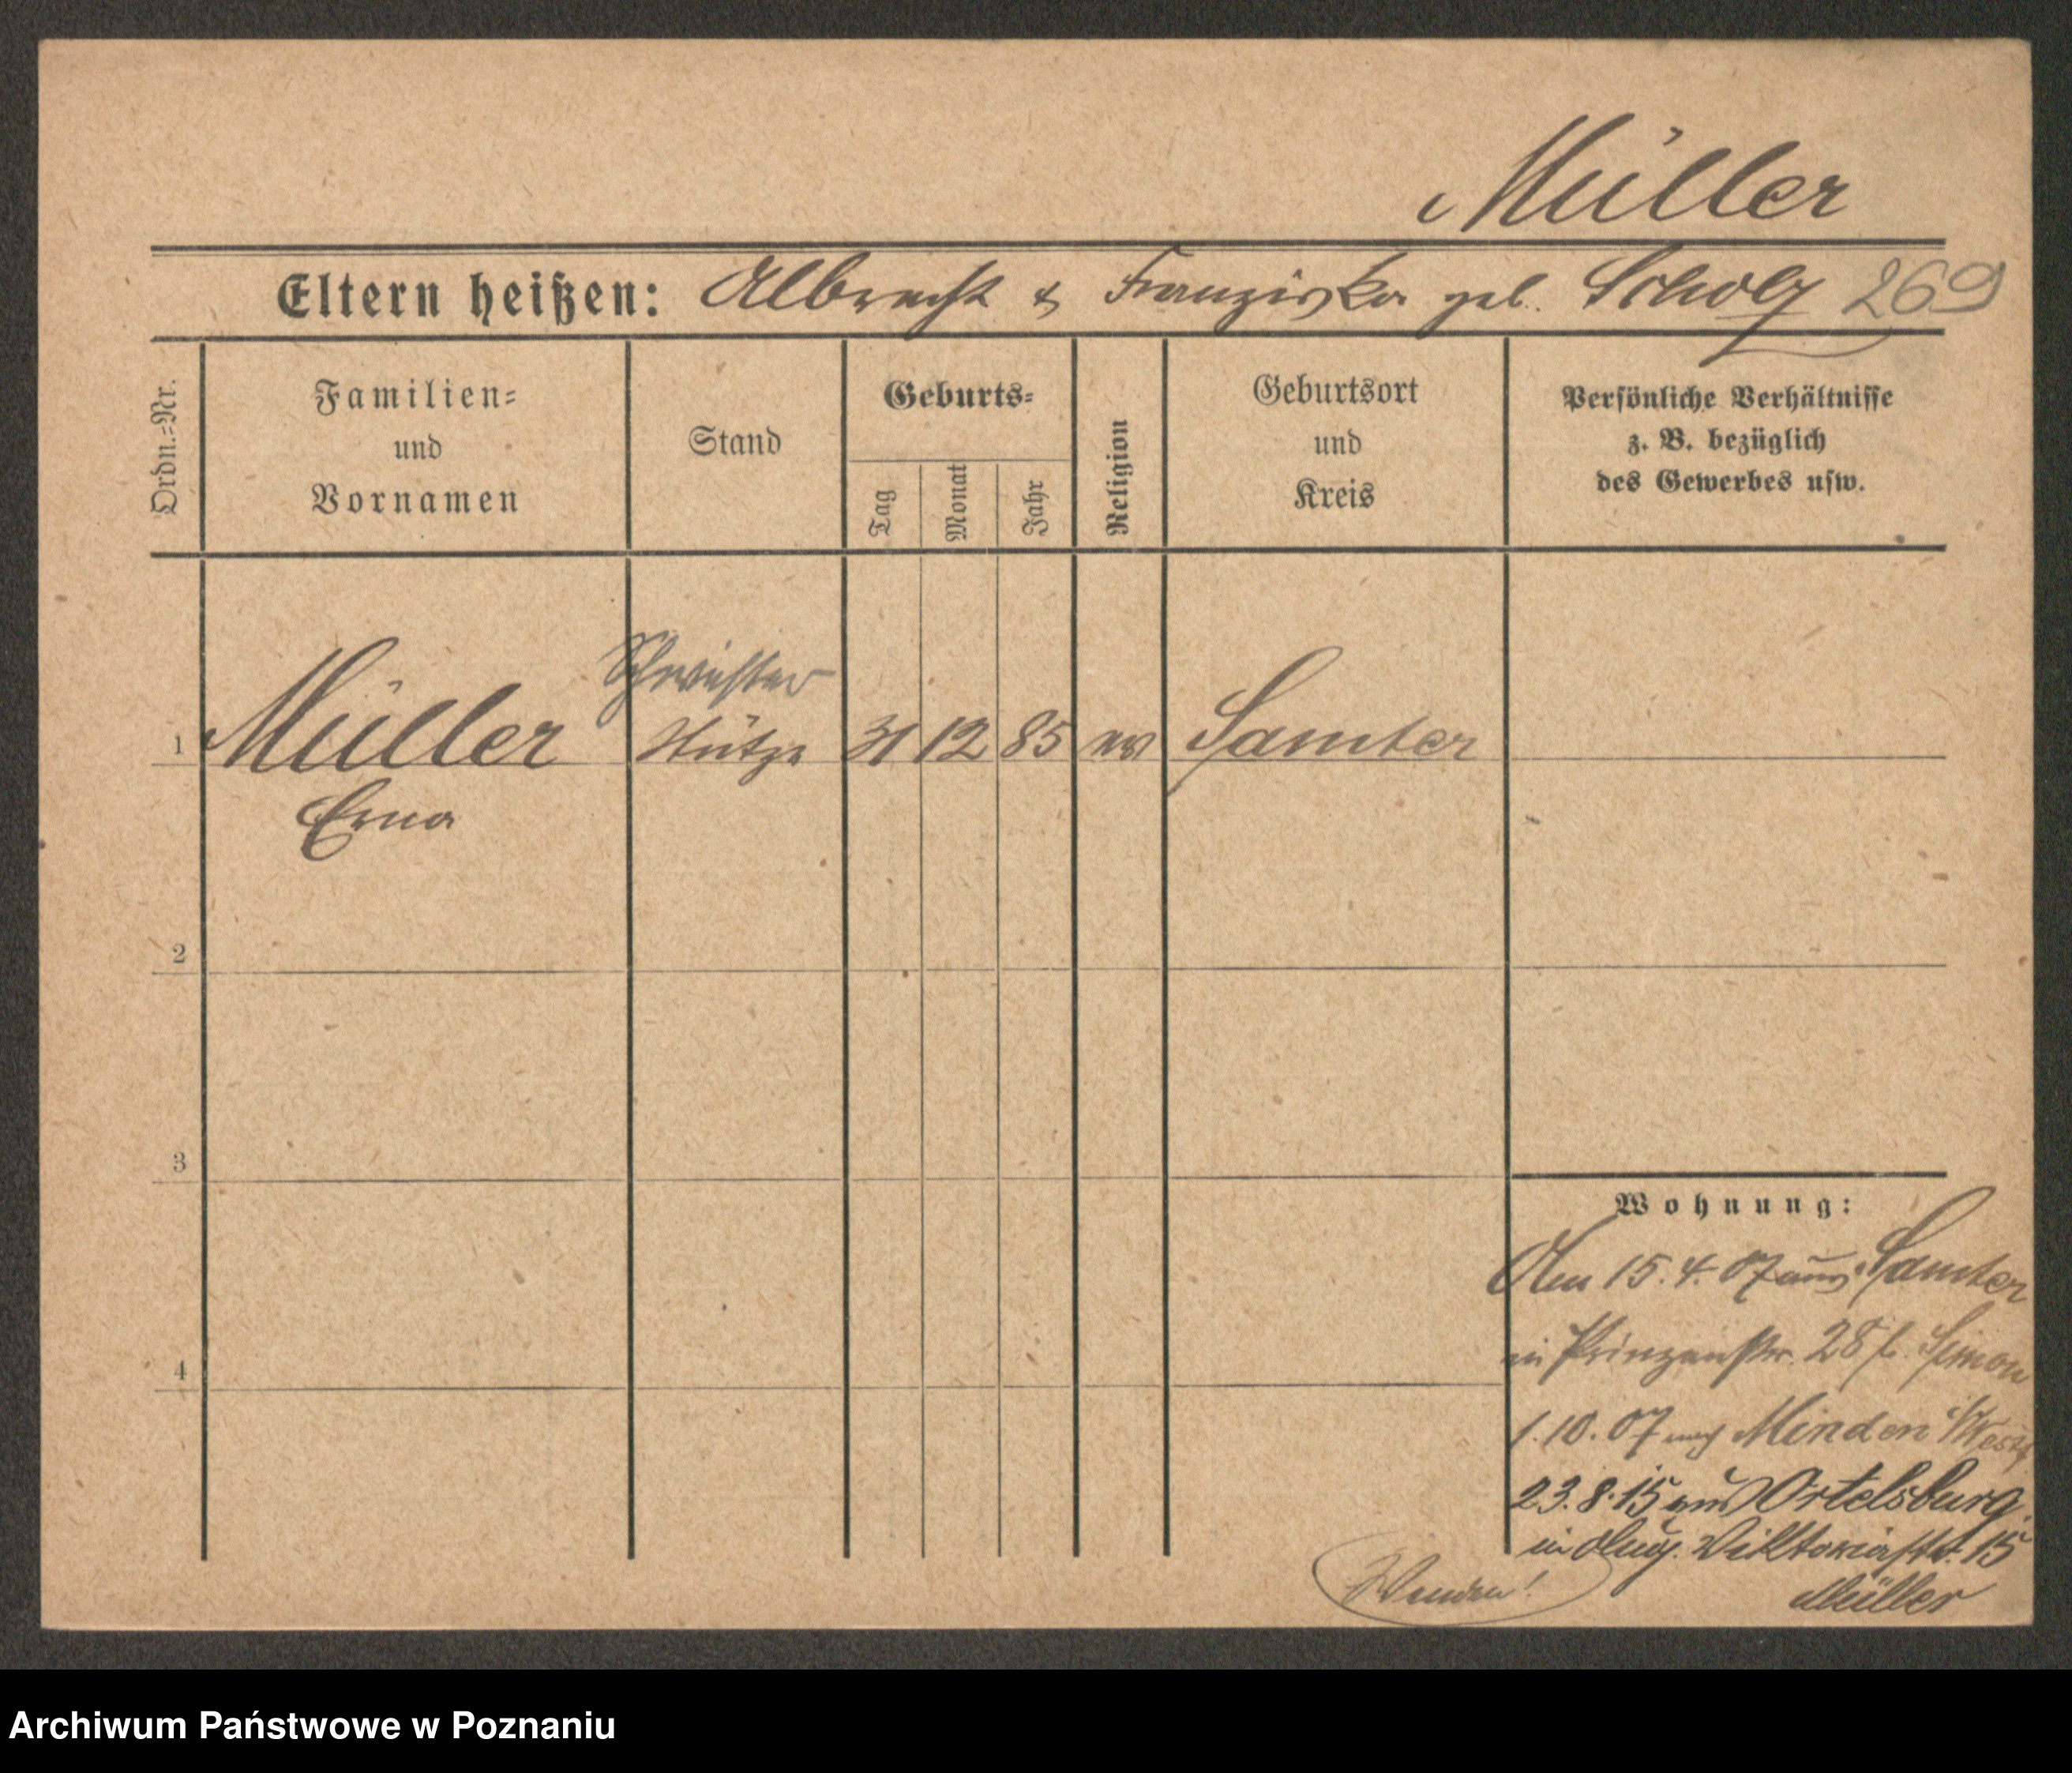 Müller
Eltern heißen: Albrecht & Franziska geb. Scholz 269
Ordn.-Nr.
Familien-
und
Vornamen
Stand
Geburts-
Tag
Monat
Jahr
Religion
Geburtsort
und
Kreis
Persönliche Verhältnisse
z. B. bezüglich
des Gewerbes usw.
Schwester
1 Müller Stütze 31 12 85 ev Samter
Erna
2
3
4
Wohnung:
Am 15.4.07 aus Samter
in Prinzenstr. 28 b. Simon
1.10.07 nach Minden i/Westf
23.8.15 aus Ortelsburg
in Aug. Viktoriastr. 15
Müller
Wenden!
Archiwum Państwowe w Poznaniu